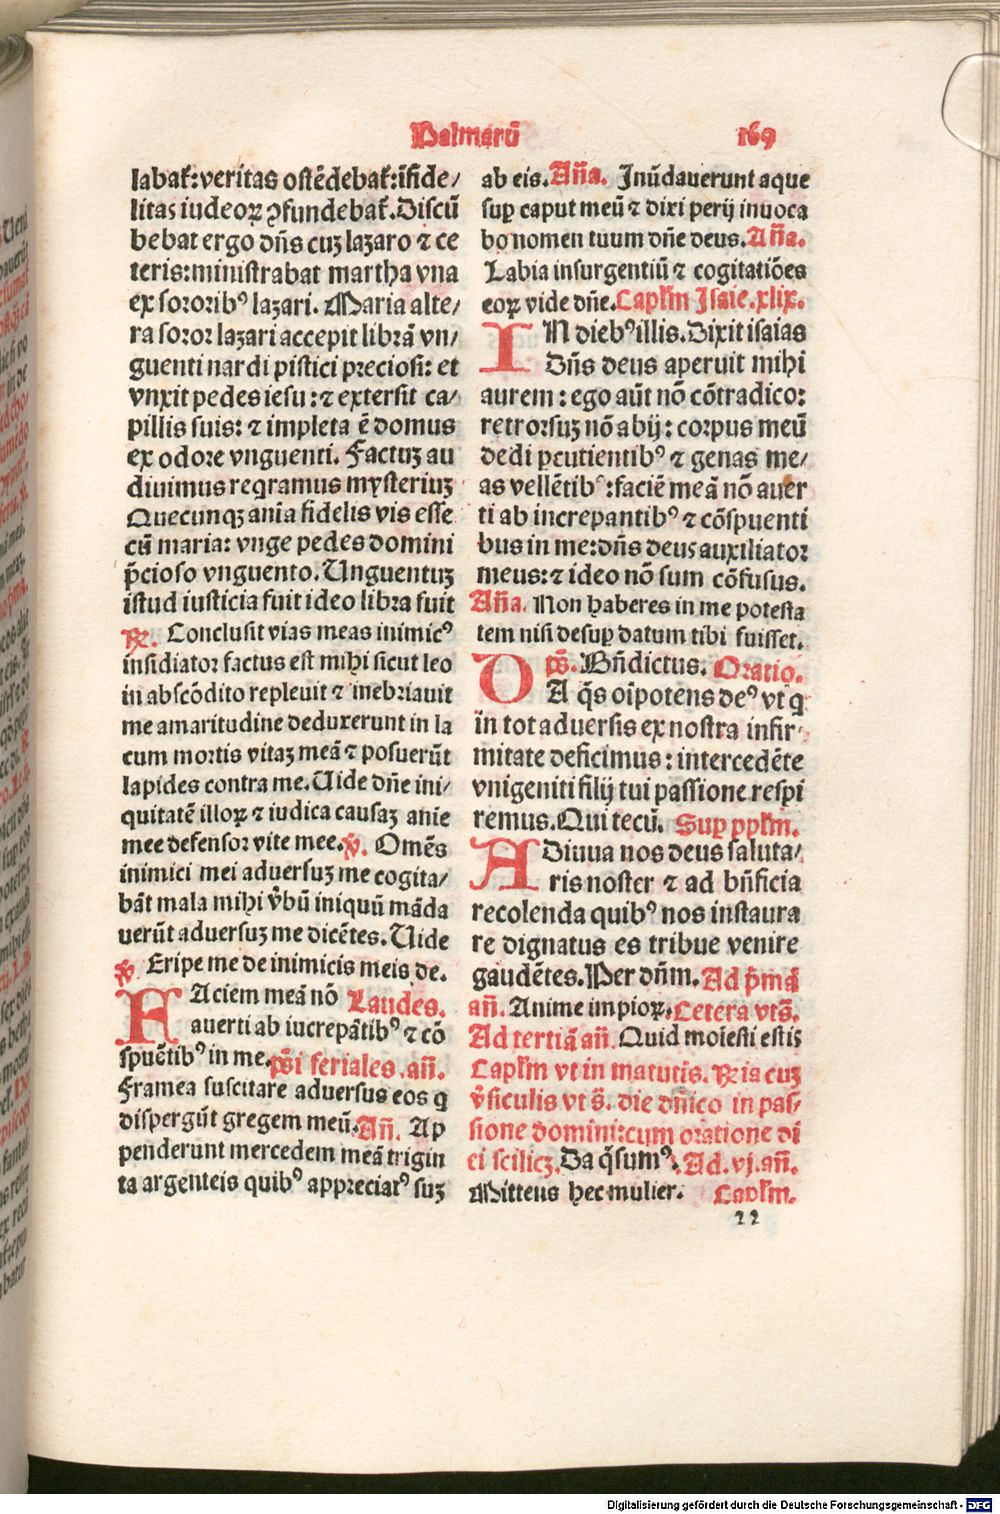 Palmarū 169
labat᷒:veritas ostēdebat᷒:īfide/
litas iudeoꝝ ꝯfundebat᷒.Discū
bebat ergo dn̄s cuꝫ lazaro ⁊ ce
teris:ministrabat martha vna
ex sororibꝰ lazari. Maria alte/
ra soror lazari accepit librā vn/
guenti nardi pistici preciosi: et
vnxit pedes iesu:⁊ extersit ca/
pillis suis: ⁊ impleta ē domus
ex odore vnguenti. Factuꝫ au
diuimus reqramus mysteriuꝫ
Quecunqꝫ anīa fidelis vis esse
cū maria: vnge pedes domini
p̄cioso vnguento. Unguentuꝫ
istud iusticia fuit ideo libra fuit
℟. Conclusit vias meas inimicꝰ
insidiator factus est mihi sicut leo
in abscōdito repleuit ⁊ inebriauit
me amaritudine deduxerunt in la
cum mortis vitaꝫ meā ⁊ posuerūt
lapides contra me. Uide dn̄e ini/
quitatē illoꝝ ⁊ iudica causaꝫ anie
mee defensor vite mee. ℣. Omēs
inimici mei aduersuꝫ me cogita/
bāt mala mihi v̄bū iniquū māda
uerūt aduersuꝫ me dicētes. Uide
℣. Eripe me de inimicis meis de.
FAciem meā nō Laudes.
auerti ab iucrepātibꝰ ⁊ cō
spuētibꝰ in me. ps̄i feriales .an̄.
Framea suscitare aduersus eos q
dispergūt gregem meū. An̄. Ap
penderunt mercedem meā trigin
ta argenteis quibꝰ appreciarꝰ suꝫ
ab eis. An̄a. Inūdauerunt aque
suꝑ caput meū ⁊ dixi perij inuoca
bo nomen tuum dn̄e deus. An̄a.
Labia insurgentiū ⁊ cogitatiōes
eoꝝ vide dn̄e. Capl̄m Isaie.xlix.
IN diebꝰ illis. Dixit isaias
Dn̄s deus aperuit mihi
aurem: ego aūt nō cōtradico:
retrorsuꝫ nō abij: corpus meū
dedi ꝑcutientibꝰ ⁊ genas me/
as vellētibꝰ:faciē meā nō auer
ti ab increpantibꝰ ⁊ cōspuenti
bus in me:dn̄s deus auxiliator
meus:⁊ ideo nō sum cōfusus.
An̄a. Non haberes in me potesta
tem nisi desuꝑ datum tibi fuisset.
ps̄. Bn̄dictus. Oratio.
DA q̄s oīpotens deꝰ vt q
in tot aduersis ex nostra infir/
mitate deficimus: intercedēte
vnigeniti filij tui passione respi
remus. Qui tecū. Suꝑ ppl̄m.
ADiuua nos deus saluta/
ris noster ⁊ ad bn̄ficia
recolenda quibꝰ nos instaura
re dignatus es tribue venire
gaudētes. Per dn̄m. Ad p̄mā
an̄. Anime impioꝝ. Cetera vts̄.
Ad tertiā an̄. Quid molesti estis
Capl̄m vt in matutis. ℟ia cuꝫ
v̄siculis vt s̄. die dn̄ico in pas/
sione domini:cum oratione di
ei scilicꝫ. Da q̄sumꝰ. Ad.vj.an̄.
Mittens hec mulier. Capl̄m.
22
Digitalisierung gefördert durch die Deutsche Forschungsgemeinschaft - DFG